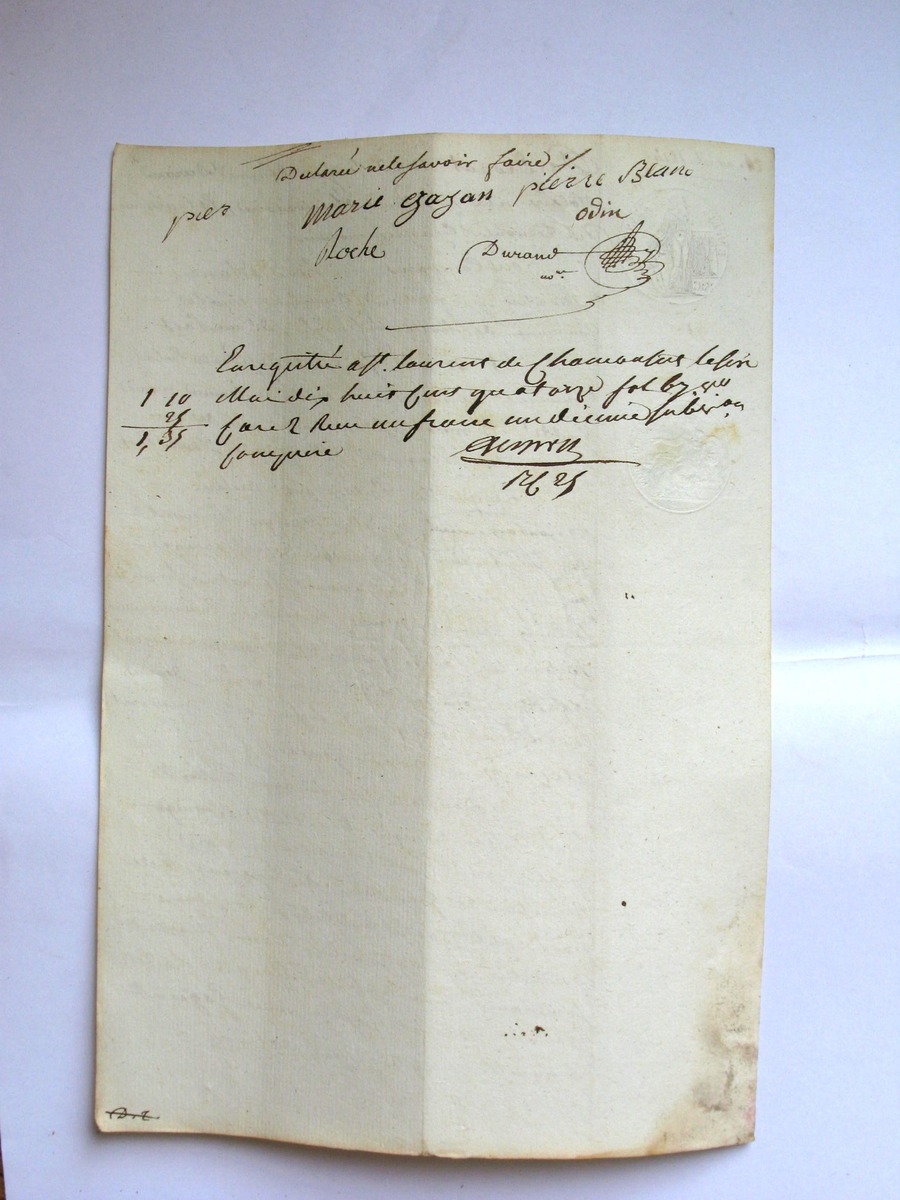 Declaré ne le savoir faire ./.
pier Marie gazan pierre Blanc
odin
Roche Durand
no.re
Enregistré a St. laurent de Chamousset le six
1 10 Mai dix huit cent quatorze fol 87
25 Case 2 Reçu un franc un dixieme
1, 35 comprise